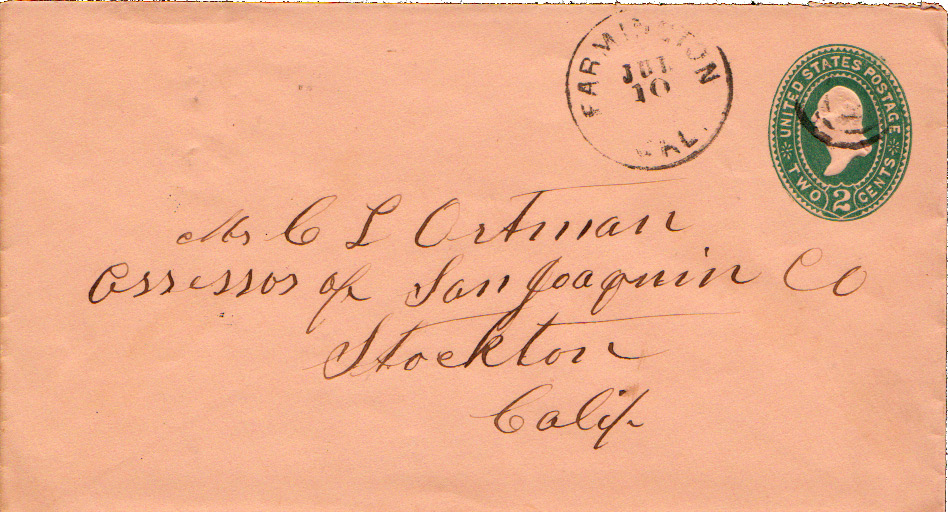 FARMINGTON
JUL
10
CAL.
UNITED STATES POSTAGE
TWO 2 CENTS
Mr C L Ortman
Assessor of San Joaquin Co
Stockton
Calif.